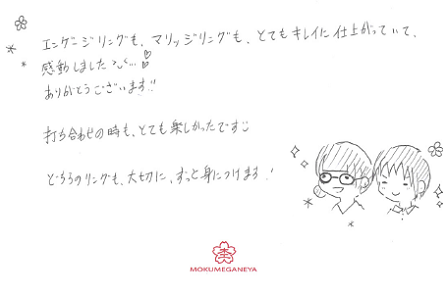 エンゲージリングも、マリッジリングも、とてもキレイに仕上がっていて、
感動しました
ありがとうございます!!
打ち合わせの時も、とても楽しかったです
どちらのリングも、大切に、ずっと身につけます!
MOKUMEGANEYA